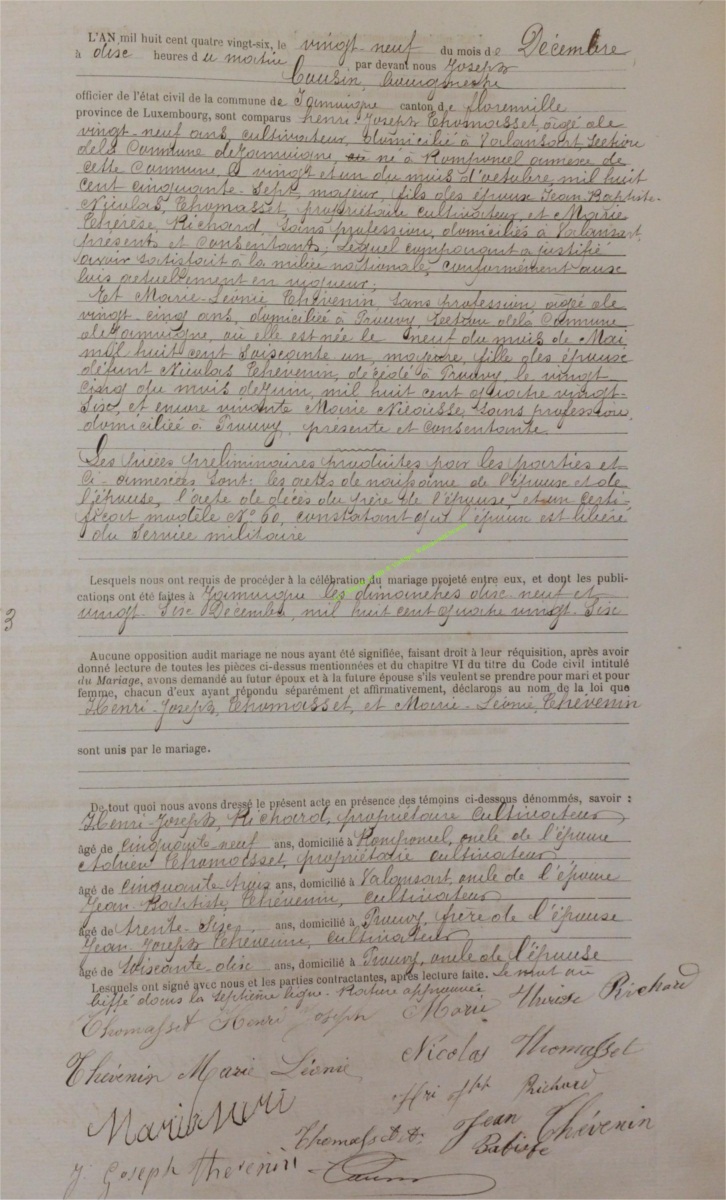 L'AN mil huit cent quatre vingt-six, le vingt-neuf du mois de Décembre
à disc heures du matin, par devant nous Joseph
Cousin, bourgmestre
officier de l'état civil de la commune de Jamoigne canton de florenville
province de Luxembourg, sont comparus henri-Joseph Thomasset, âgé de
vingt-neuf ans, cultivateur, domicilié à Valansart, Section
de la Commune de Jamoigne, né à Romponcel annexe de
cette Commune, le vingt et un du mois d'octobre, mil huit
cent cinquante-Sept, majeur, fils des époux Jean-Baptiste-
Nicolas, Thomasset, propriétaire cultivateur, et Marie
Thérèse, Richard, Sans profession, domiciliés à Valansart,
présents et Consentants; Lequel comparant a justifié
avoir satisfait à la milice nationale, conformément aux
lois actuellement en vigueur;
Et Marie-Léonie Thévenin, Sans profession, âgée de
vingt-cinq ans, domiciliée à Prouvy, Section de la Commune
de Jamoigne, où elle est née le neuf du mois de Mai
mil huit cent Soiscante un, majeure, fille des époux
défunt Nicolas Thévenin, décédé à Prouvy, le vingt
cinq du mois de Juin, mil huit cent quatre vingt-
Sisc, et encore vivante Marie Sans profession,
domiciliée à Prouvy, présente et consentante.
Les pièces préliminaires produites par les parties et
Ci-annexées Sont: les actes de naissance de l'époux et de
l'épouse, l'acte de décès du père de l'épouse, et un certi-
ficat modèle N° 60, constatant que l'époux est libéré
du Service militaire
Lesquels nous ont requis de procéder à la célébration du mariage projeté entre eux, et dont les publi-
cations ont été faites à Jamoigne les dimanches disc neuf et
vingt-Sisc Décembre, mil huit cent quatre vingt-Sisc
3
Aucune opposition audit mariage ne nous ayant été signifiée, faisant droit à leur réquisition, après avoir
donné lecture de toutes les pièces ci-dessus mentionnées et du chapitre VI du titre du Code civil intitulé
du Mariage, avons demandé au futur époux et à la future épouse s'ils veulent se prendre pour mari et pour
femme, chacun d'eux ayant répondu séparément et affirmativement, déclarons au nom de la loi que
Henri-Joseph, Thomasset, et Marie-Léonie, Thévenin
sont unis par le mariage.
De tout quoi nous avons dressé le présent acte en présence des témoins ci-dessous dénommés, savoir :
Henri-Joseph, Richard, propriétaire Cultivateur,
âgé de cinquante-neuf ans, domicilié à Romponcel, oncle de l'époux
Adrien Thomasset, propriétaire cultivateur,
âgé de cinquante trois ans, domicilié à Valansart, oncle de l'époux
Jean-Baptiste, Thévenin, Cultivateur
âgé de trente-Sisc ans, domicilié à Prouvy, frère de l'épouse
Jean-Joseph Thévenin, Cultivateur
âgé de Soiscante-disc ans, domicilié à Prouvy, oncle de l'épouse
Lesquels ont signé avec nous et les parties contractantes, après lecture faite. Le mot
biffé dans la septième ligne. Rature approuvée
Thomasset Henri Joseph Marie Thérèse Richard
Thévenin Marie Léonie Nicolas Thomasset
Hri Jph Richard
Marie
Thomasset A. Jean Babtiste Thévenin
J. Joseph Thevenin Cousin